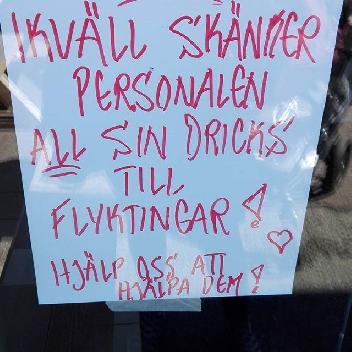 IKVÄLL SKÄNKER
PERSONALEN
ALL SIN DRICKS
TILL
FLYKTINGAR!
HJÄLP OSS ATT
HJÄLPA DEM!